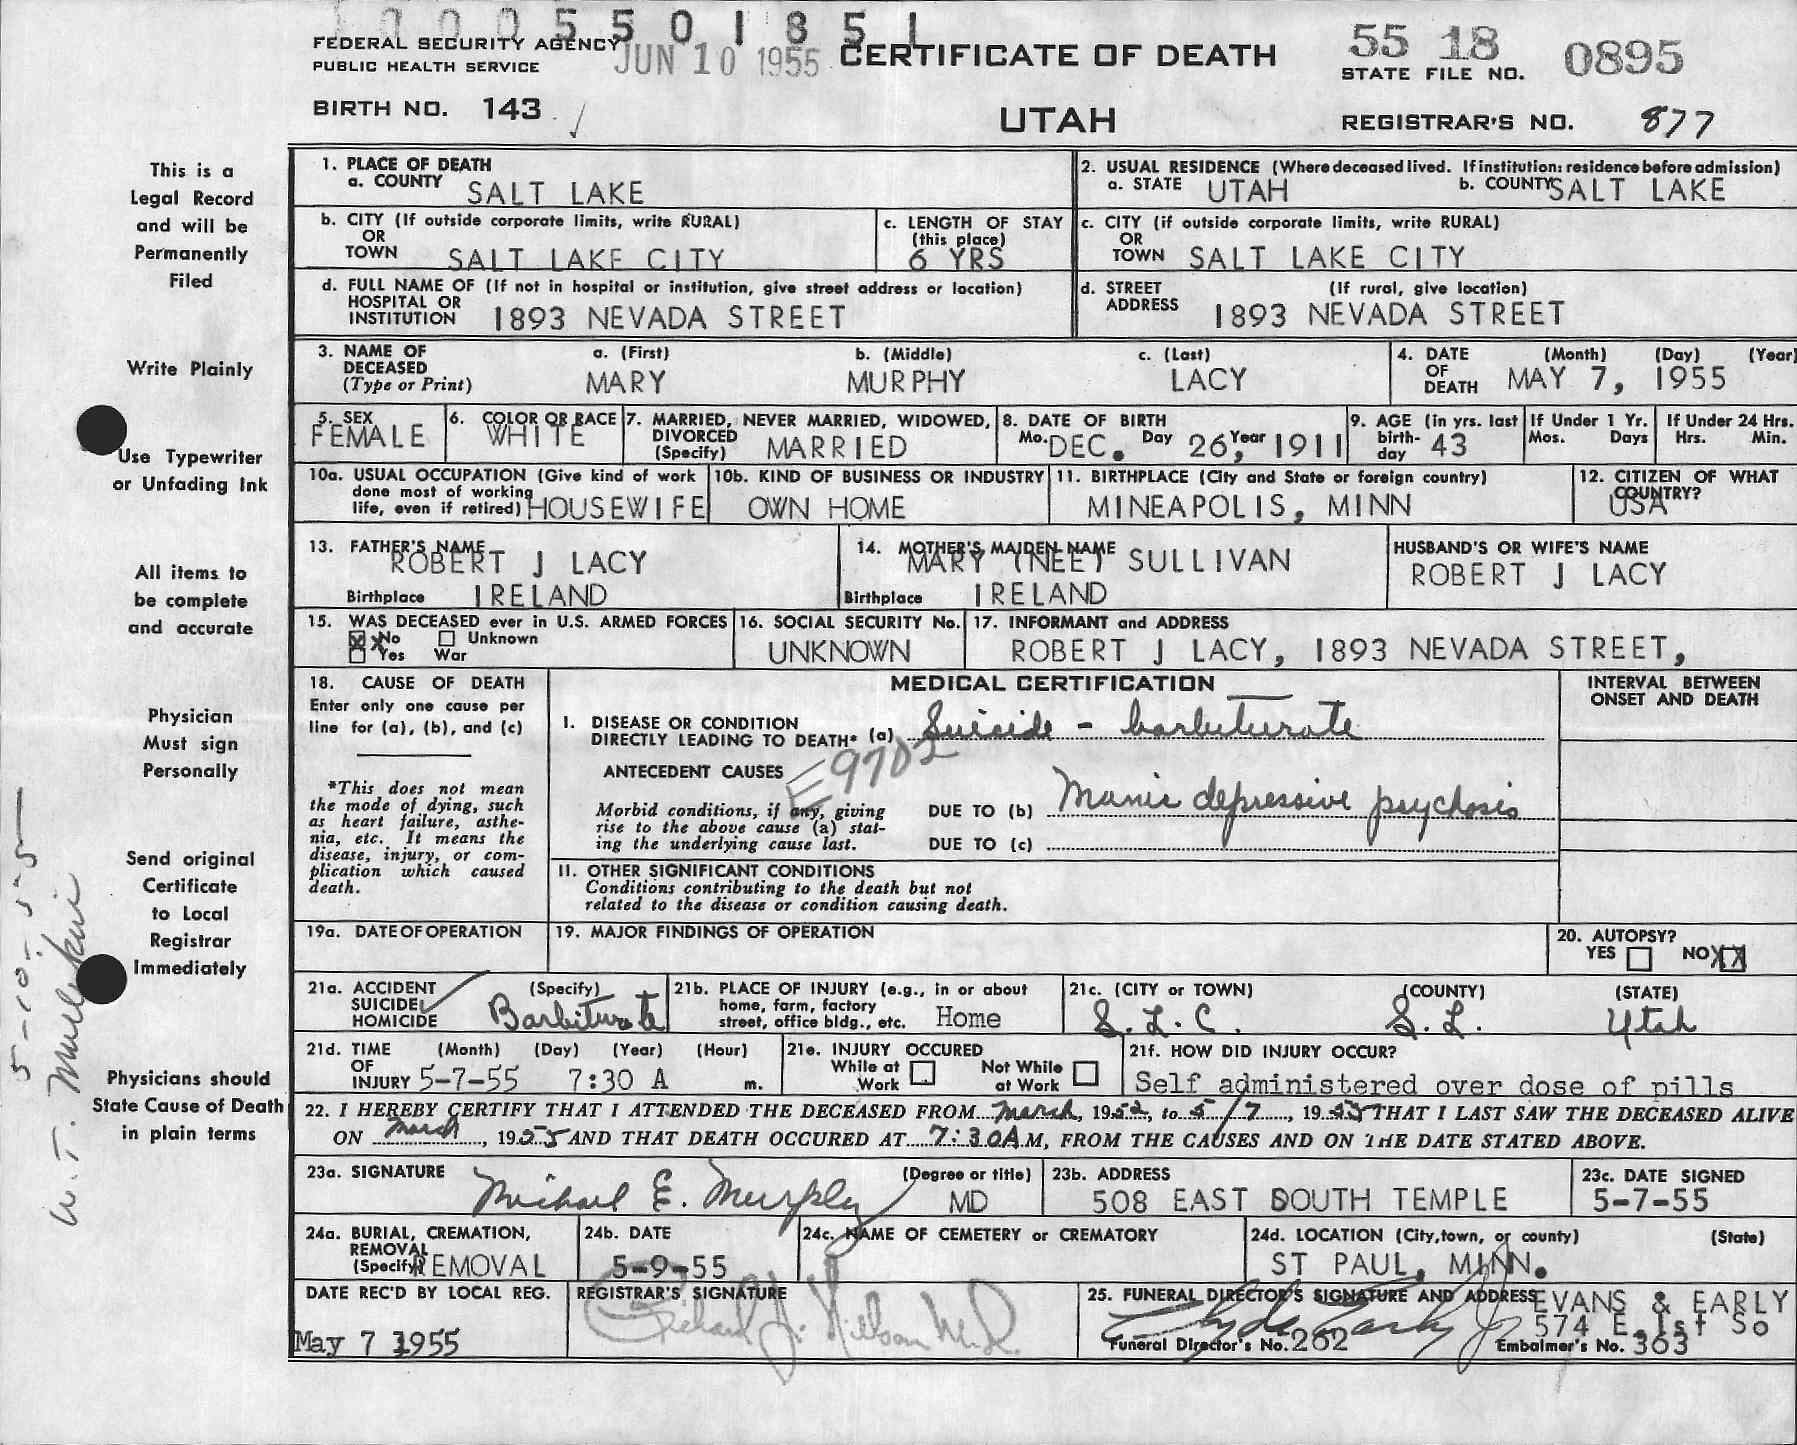 10005501851
FEDERAL SECURITY AGENCY
PUBLIC HEALTH SERVICE
JUN 10 1955
CERTIFICATE OF DEATH
55 18 0895
STATE FILE NO.
BIRTH NO. 143
UTAH
REGISTRAR'S NO. 877
This is a
Legal Record
and will be
Permanently
Filed
Write Plainly
Use Typewriter
or Unfading Ink
All items to
be complete
and accurate
Physician
Must sign
Personally
Send original
Certificate
to Local
Registrar
Immediately
Physicians should
State Cause of Death
in plain terms
5-10-55
W.T.
1. PLACE OF DEATH
a. COUNTY SALT LAKE
2. USUAL RESIDENCE (Where deceased lived. If institution: residence before admission)
a. STATE UTAH b. COUNTY SALT LAKE
b. CITY (If outside corporate limits, write RURAL)
OR
TOWN SALT LAKE CITY
c. LENGTH OF STAY
(this place)
6 YRS
c. CITY (if outside corporate limits, write RURAL)
OR
TOWN SALT LAKE CITY
d. FULL NAME OF (If not in hospital or institution, give street address or location)
HOSPITAL OR
INSTITUTION 1893 NEVADA STREET
d. STREET (If rural, give location)
ADDRESS 1893 NEVADA STREET
3. NAME OF
DECEASED
(Type or Print)
a. (First) b. (Middle) c. (Last)
MARY MURPHY LACY
4. DATE (Month) (Day) (Year)
OF
DEATH MAY 7, 1955
5. SEX
FEMALE
6. COLOR OR RACE
WHITE
7. MARRIED, NEVER MARRIED, WIDOWED,
DIVORCED
(Specify) MARRIED
8. DATE OF BIRTH
Mo. DEC. Day 26, Year 1911
9. AGE (in yrs. last
birth-
day 43
If Under 1 Yr.
Mos. Days
If Under 24 Hrs.
Hrs. Min.
10a. USUAL OCCUPATION (Give kind of work
done most of working
life, even if retired) HOUSEWIFE
10b. KIND OF BUSINESS OR INDUSTRY
OWN HOME
11. BIRTHPLACE (City and State or foreign country)
MINEAPOLIS, MINN
12. CITIZEN OF WHAT
COUNTRY?
USA
13. FATHER'S NAME
ROBERT J LACY
Birthplace IRELAND
14. MOTHER'S MAIDEN NAME
MARY (NEE) SULLIVAN
Birthplace IRELAND
HUSBAND'S OR WIFE'S NAME
ROBERT J LACY
15. WAS DECEASED ever in U.S. ARMED FORCES
No Unknown
Yes War
16. SOCIAL SECURITY No.
UNKNOWN
17. INFORMANT and ADDRESS
ROBERT J LACY, 1893 NEVADA STREET,
18. CAUSE OF DEATH
Enter only one cause per
line for (a), (b), and (c)
*This does not mean
the mode of dying, such
as heart failure, asthe-
nia, etc. It means the
disease, injury, or com-
plication which caused
death.
MEDICAL CERTIFICATION
INTERVAL BETWEEN
ONSET AND DEATH
I. DISEASE OR CONDITION
DIRECTLY LEADING TO DEATH* (a) Suicide - barbiturate
ANTECEDENT CAUSES
E9702
Morbid conditions, if any, giving
rise to the above cause (a) stat-
ing the underlying cause last.
DUE TO (b) Manic depressive psychosis
DUE TO (c)
II. OTHER SIGNIFICANT CONDITIONS
Conditions contributing to the death but not
related to the disease or condition causing death.
19a. DATE OF OPERATION
19. MAJOR FINDINGS OF OPERATION
20. AUTOPSY?
YES NO XX
21a. ACCIDENT (Specify)
SUICIDE
HOMICIDE Barbiturate
21b. PLACE OF INJURY (e.g., in or about
home, farm, factory
street, office bldg., etc. Home
21c. (CITY or TOWN) (COUNTY) (STATE)
S.L.C. S.L. Utah
21d. TIME (Month) (Day) (Year) (Hour)
OF
INJURY 5-7-55 7:30 A m.
21e. INJURY OCCURED
While at Work Not While at Work
21f. HOW DID INJURY OCCUR?
Self administered over dose of pills
22. I HEREBY CERTIFY THAT I ATTENDED THE DECEASED FROM March, 1952, to 5/7, 1955 THAT I LAST SAW THE DECEASED ALIVE
ON March, 1955 AND THAT DEATH OCCURED AT 7:30A M, FROM THE CAUSES AND ON THE DATE STATED ABOVE.
23a. SIGNATURE (Degree or title)
Michael E. Murphy MD
23b. ADDRESS
508 EAST SOUTH TEMPLE
23c. DATE SIGNED
5-7-55
24a. BURIAL, CREMATION,
REMOVAL
(Specify) REMOVAL
24b. DATE
5-9-55
24c. NAME OF CEMETERY OR CREMATORY
24d. LOCATION (City, town, or county) (State)
ST PAUL, MINN.
DATE REC'D BY LOCAL REG.
May 7 1955
REGISTRAR'S SIGNATURE
25. FUNERAL DIRECTOR'S SIGNATURE AND ADDRESS EVANS & EARLY
574 E. 1st So
Clyde Early Jr
Funeral Director's No. 262 Embalmer's No. 363